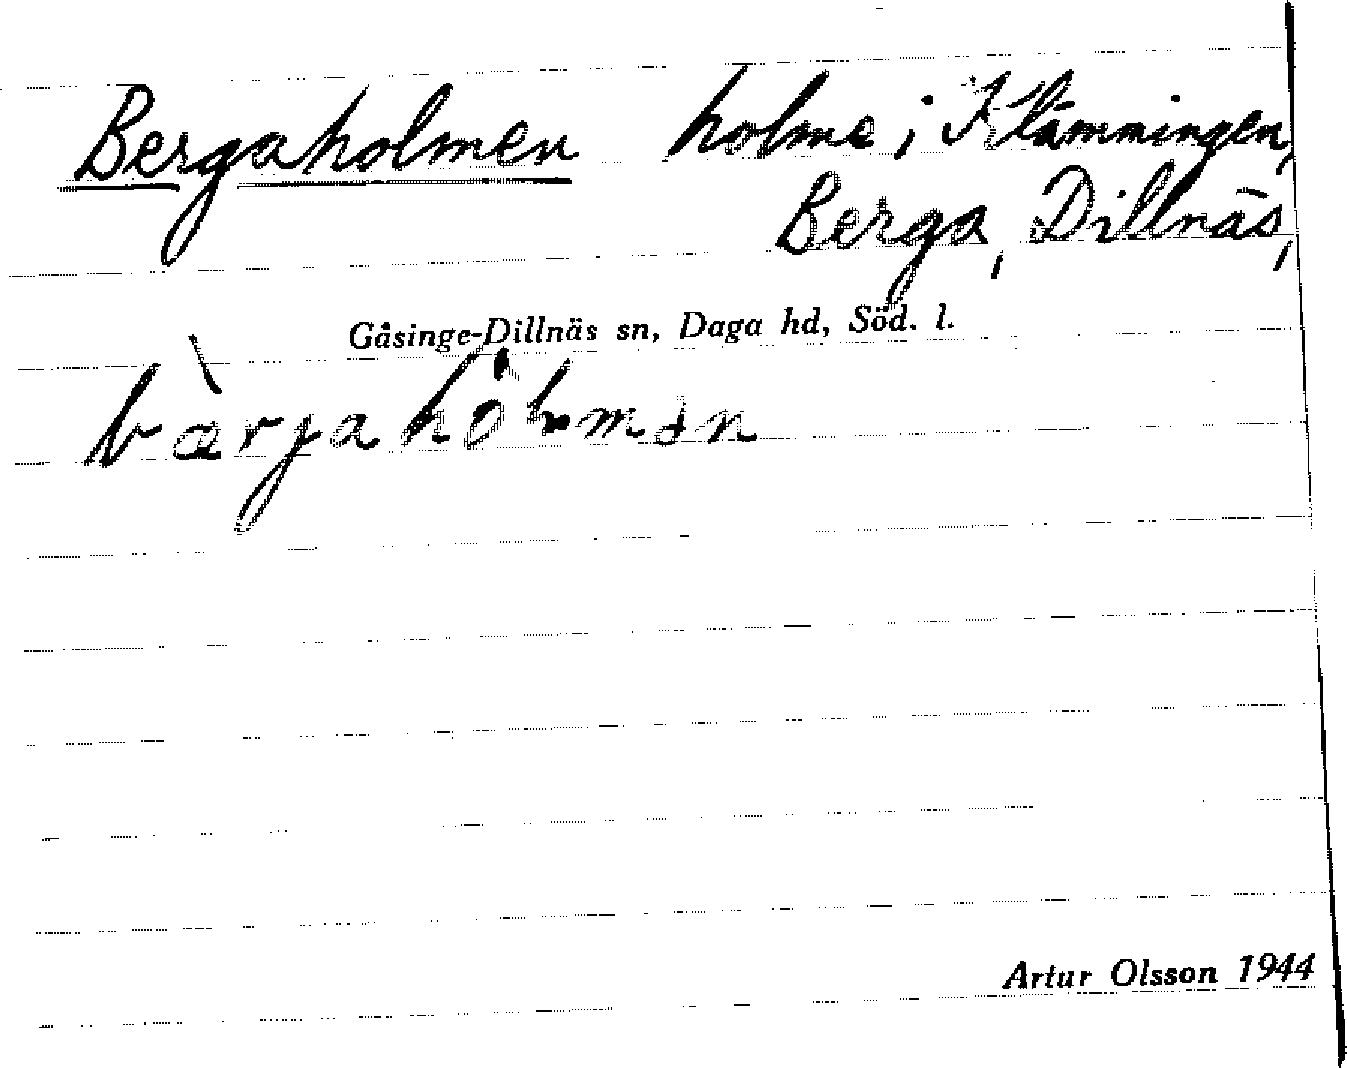 Bergaholmen holme i Klämmingen,
Berga, Dillnäs,
Gåsinge-Dillnäs sn, Daga hd, Söd. l.
Artur Olsson 1944